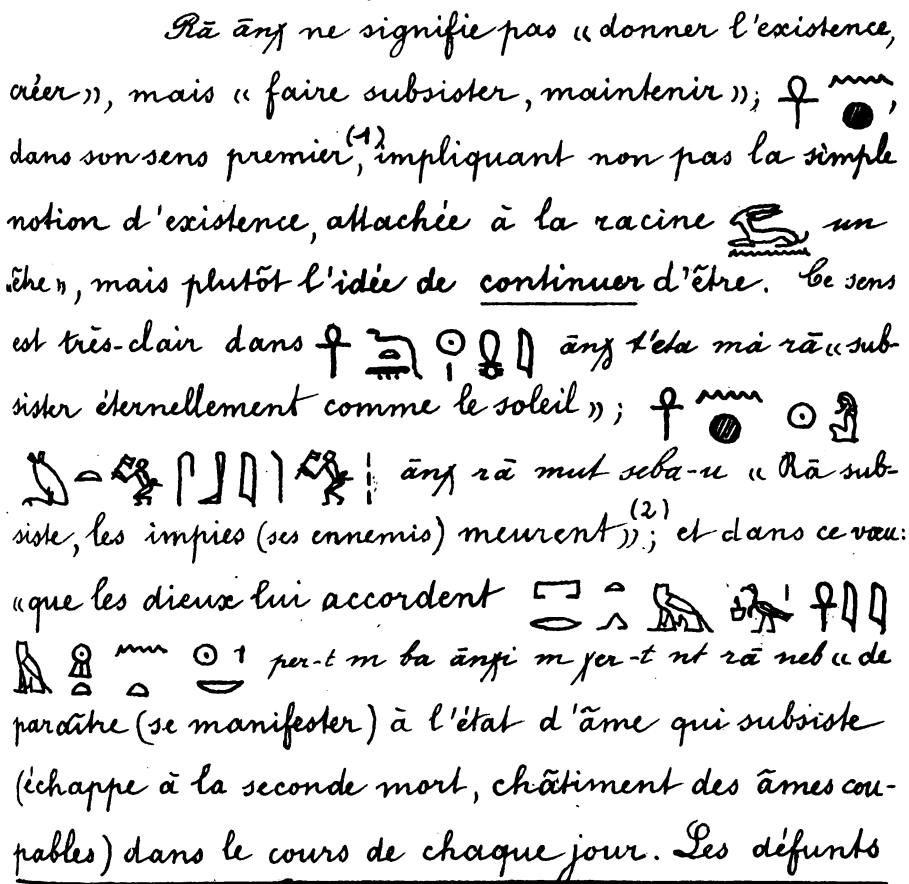 Rā ānχ ne signifie pas « donner l'existence,
créer », mais « faire subsister, maintenir » ; 𓋹𓈖𓐍,
dans son sens premier (1), impliquant non pas la simple
notion d'existence, attachée à la racine 𓃹𓈖 un
« être », mais plutôt l'idée de continuer d'être. Ce sens
est très-clair dans 𓋹 𓇳𓏤 𓇋 ānχ t'eta má rā « sub-
sister éternellement comme le soleil » ; 𓋹𓈖𓐍 𓇳
ānχ rā mut seba-u « Rā sub-
siste, les impies (ses ennemis) meurent » (2) ; et dans ce vœu :
« que les dieux lui accordent 𓉐𓂋𓏏𓂻𓅓 𓋹𓇋𓇋
𓅓 𓈖𓏏 𓇳𓏤𓎟 per-t m ba ānχi m χer-t nt rā neb « de
paraître (se manifester) à l'état d'âme qui subsiste
(échappe à la seconde mort, châtiment des âmes cou-
pables) dans le cours de chaque jour. Les défunts